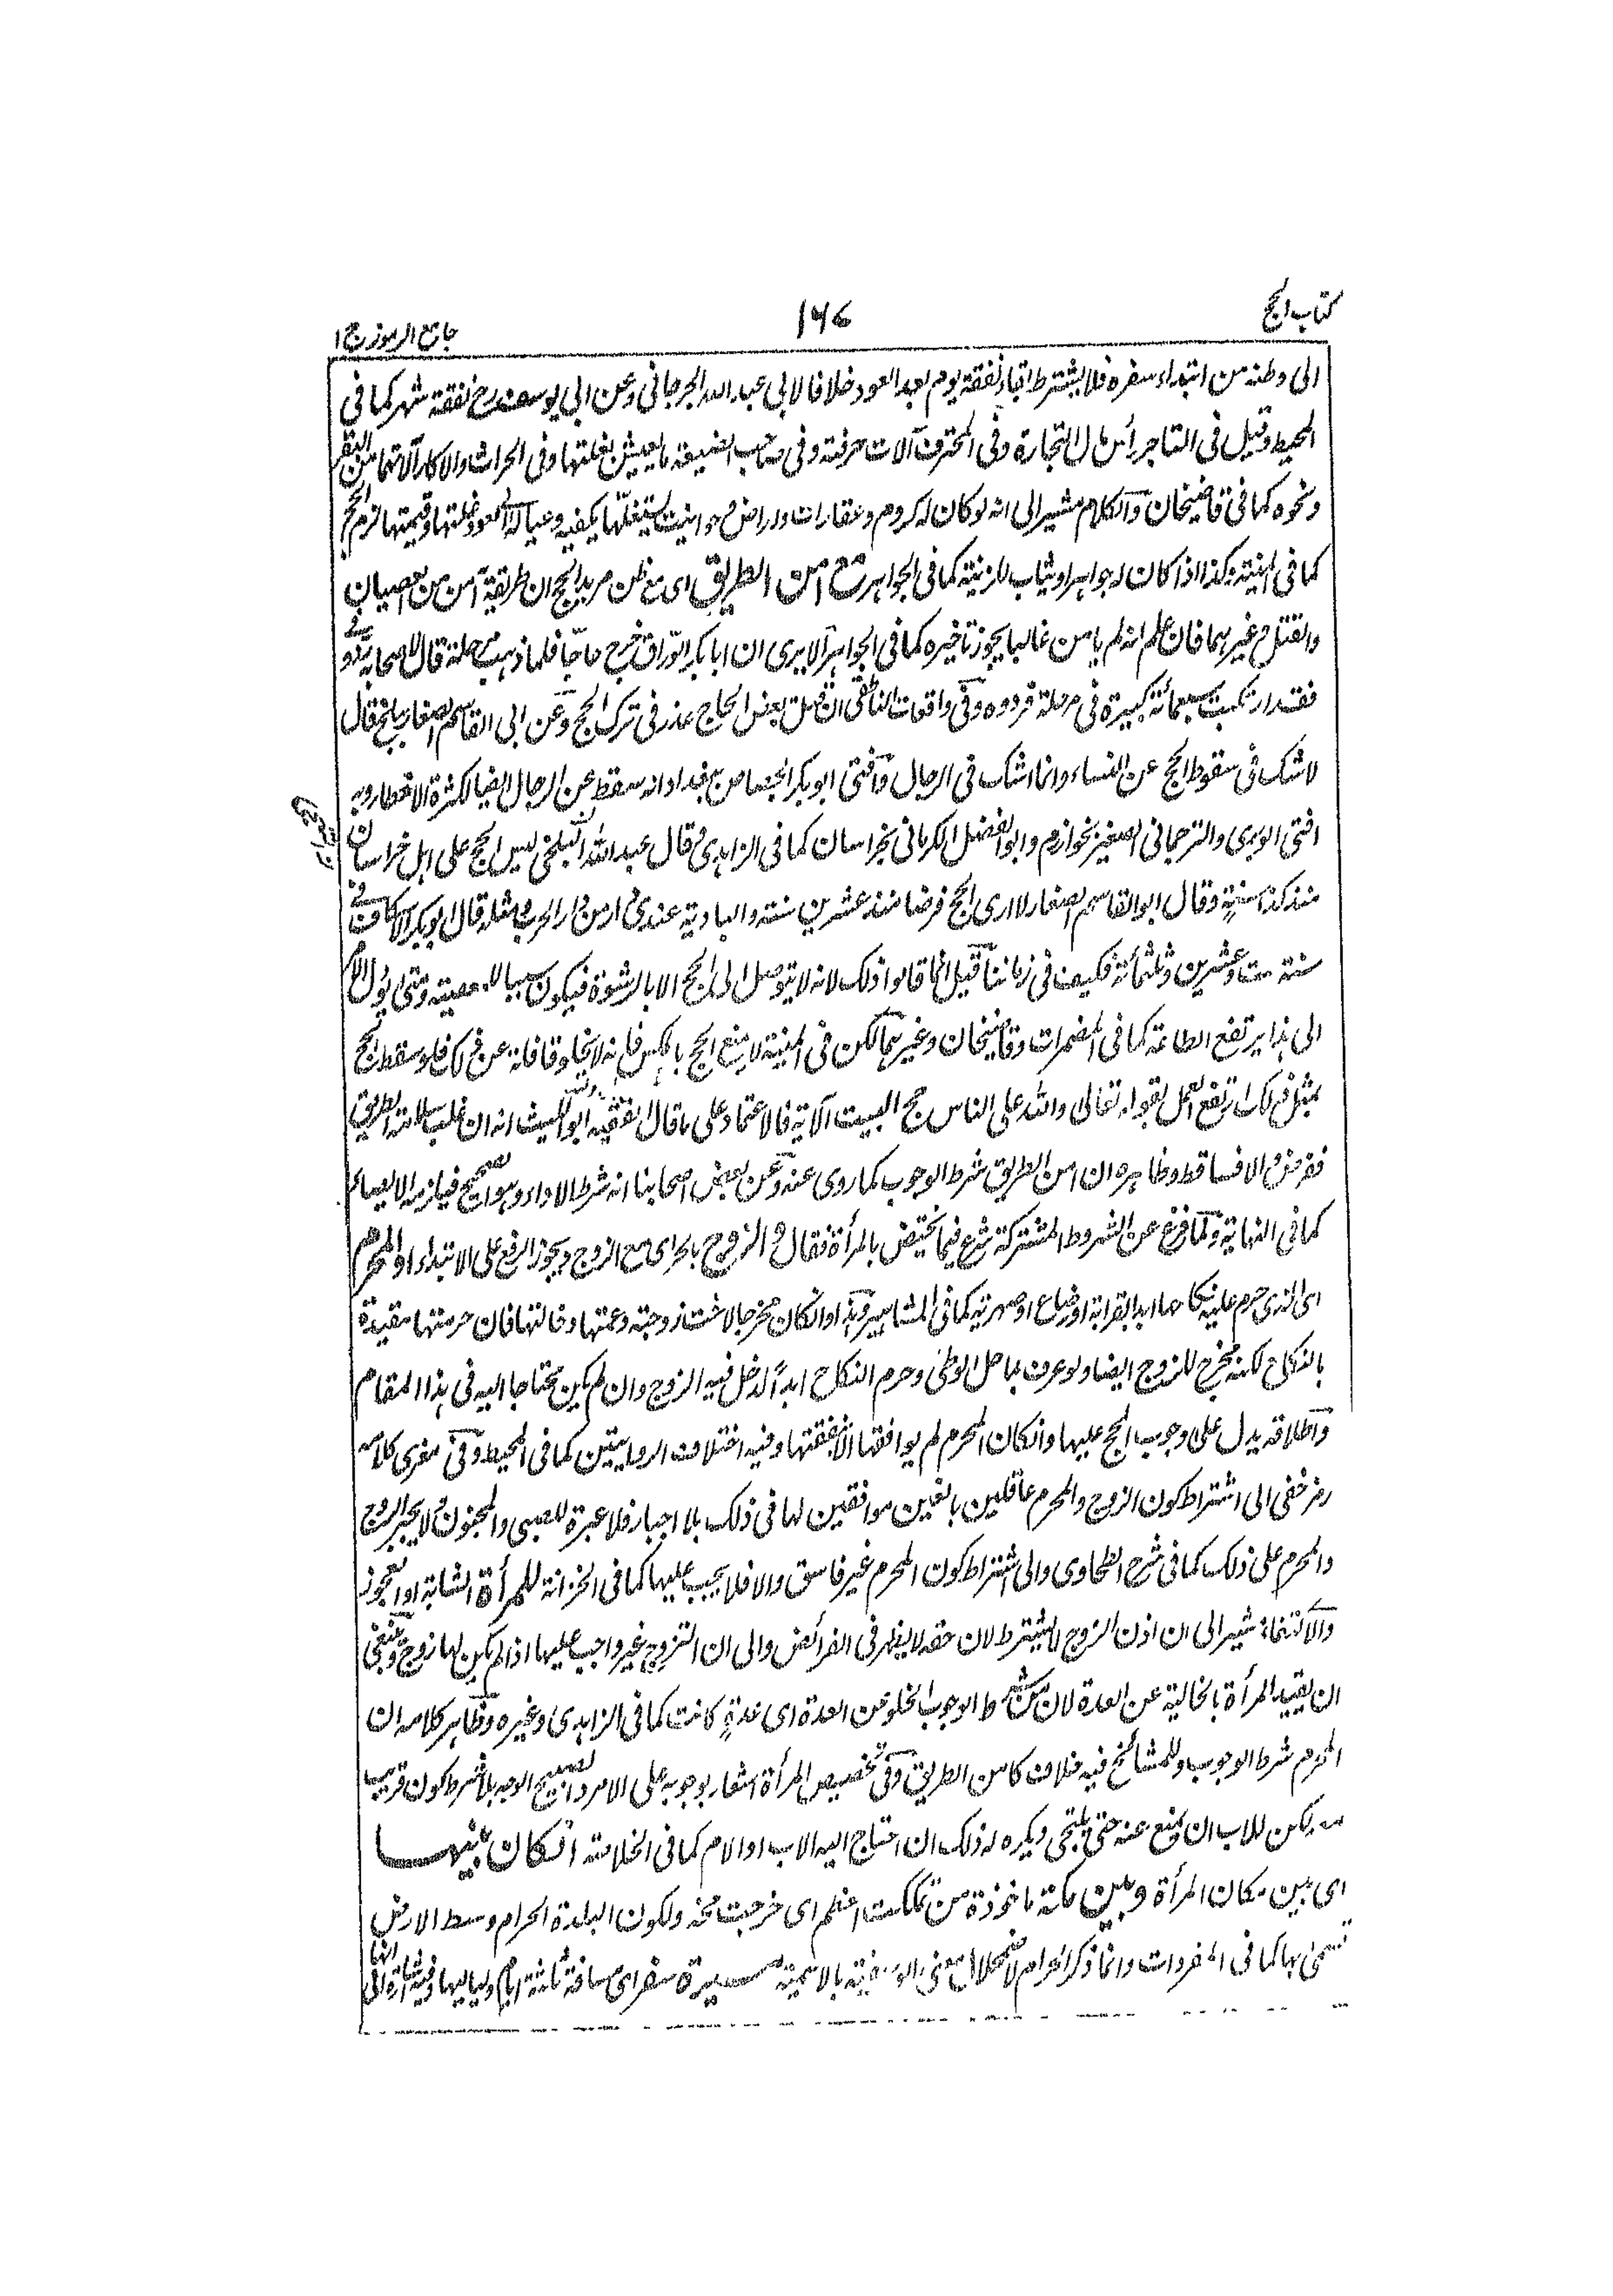 كتاب الحج
١٦٧
جامع الرموز ج ١
الى وطنه من ابتداء سفره فلا يشترط ابقاء نفقة يوم بعد العود خلافا لابي عبد الله الجرجاني وعن ابي يوسف رح نفقة شهر كما فى
المحيط وقيل فى التاجر رأس مال التجارة وفى المحترف آلات حرفته وفى صاحب الضيعة ما يعيش بغلتها وفى الحراث والاكار آلاتهما من البقر
ونحوه كما فى قاضيخان والكلام مشير الى انه لو كان له كروم وعقارات واراض وحوانيت يستغلها يكفيه وعياله الى العود غلتها وقيمتها لزم الحج
كما فى المنية وكذا اذا كان له جواهر او ثياب للزينة كما فى الجواهر مع امن الطريق اى مع ظن مريد الحج ان طريقه آمن من العصيان
والقتل وغيرهما فان علم انه لم يامن غالبا يجوز تاخيره كما فى الجواهر الا يرى ان ابا بكر الوراق خرج حاجا فلما ذهب مرحلة قال لاصحابه ردونى
فقد ارتكبت سبعمائة كبيرة فى مرحلة فردوه وفى واقعات الناطفى ان قتل بعض الحاج عذر فى ترك الحج وعن ابى القاسم الصفار ببلخ قال
لا شك فى سقوط الحج عن النساء وانما اشك فى الرجال وافتى ابو بكر الجصاص ببغداد انه سقط عن الرجال ايضا لكثرة الاخطار وبه
افتى الوبرى والترجمانى الصغير بخوارزم وابو الفضل الكرمانى بخراسان كما فى الزاهدى وقال عبد الله البلخى ليس الحج على اهل خراسان
منذ كذا سنة وقال ابو القاسم الصفار لا ارى الحج فرضا منذ عشرين سنة والبادية عندى ارمن دار الحرب ومثله قال ابو بكر الاسكاف فى
سنة ست وعشرين وثلثمائة فكيف فى زماننا قيل انما قالوا ذلك لانه لا يتوصل الى الحج الا بالرشوة فيكون سببا لمعصيته ومتى يؤل الامر
الى هذا يرتفع الطاعة كما فى المضمرات وقاضيخان وغيرهما لكن فى المنية لا يمنع الحج بالمكس فانه لا يخلو قافلة عن ذلك فلو سقط الحج
بمثل ذلك ارتفع العمل بقوله تعالى ولله على الناس حج البيت الآية فالاعتماد على ما قال الفقيه ابو الليث انه ان غلب سلامة الطريق
ففرض والا فساقط وظاهره ان امن الطريق شرط الوجوب كما روى عنه وعن بعض اصحابنا انه شرط الاداء وهو الصحيح فيلزمه الايصاء
كما فى النهاية ولما فرغ عن الشروط المشتركة شرع فيما يختص بالمرأة فقال والزوج بالجر اى مع الزوج ويجوز الرفع على الابتداء او المحرم
اى الذى حرم عليه نكاحها ابدا بقرابة او رضاع او صهرية كما فى المشاهير وهذا وان كان مخرجا لاخت زوجته وعمتها وخالتها فان حرمتها مقيدة
بالنكاح لكنه مخرج للزوج ايضا ولو عرف بما حل الوطئ وحرم النكاح ابدا لدخل فيه الزوج وان لم يكن محتاجا اليه فى هذا المقام
واطلاقه يدل على وجوب الحج عليها وان كان المحرم لم يوافقها الا بنفقتها وفيه اختلاف الروايتين كما فى المحيط وفى مغزى كلامه
رمز خفى الى اشتراط كون الزوج والمحرم عاقلين بالغين موافقين لها فى ذلك بلا اجبار فلا عبرة للصبى والمجنون ولا يجبر الزوج
والمحرم على ذلك كما فى شرح الطحاوى والى اشتراط كون المحرم غير فاسق والا فلا يجب عليها كما فى الخزانة للمرأة الشابة او العجوز
والاكتفاء مشير الى ان اذن الزوج لا يشترط لان حقه لا يظهر فى الفرائض والى ان التزوج غير واجب عليها اذا لم يكن لها زوج وينبغى
ان يقيد المرأة بالخالية عن العدة لان من شرط الوجوب الخلو عن العدة اى عدة كانت كما فى الزاهدى وغيره وظاهر كلامه ان
المحرم شرط الوجوب وللمشائخ فيه خلاف كامن الطريق وفى تخصيص المرأة اشعار بوجوبه على الامرد الصبيح الوجه بلا شرط كون قريب
لكن للاب ان يمنع عنه حتى يلتحى ويكره له ذلك ان احتاج اليه الاب او الام كما فى الخلاصة ان كان بينها
اى بين مكان المرأة وبين مكة ماخوذة من تمككت العظم اى خرجت مخه ولكون البلدة الحرام وسط الارض
سمى بها كما فى المفردات وانما ذكر الحرام لاضمحلال معنى الوصفية بالاسمية مسيرة سفر اى مسافة ثلثة ايام ولياليها وفيه اشارة الى انها